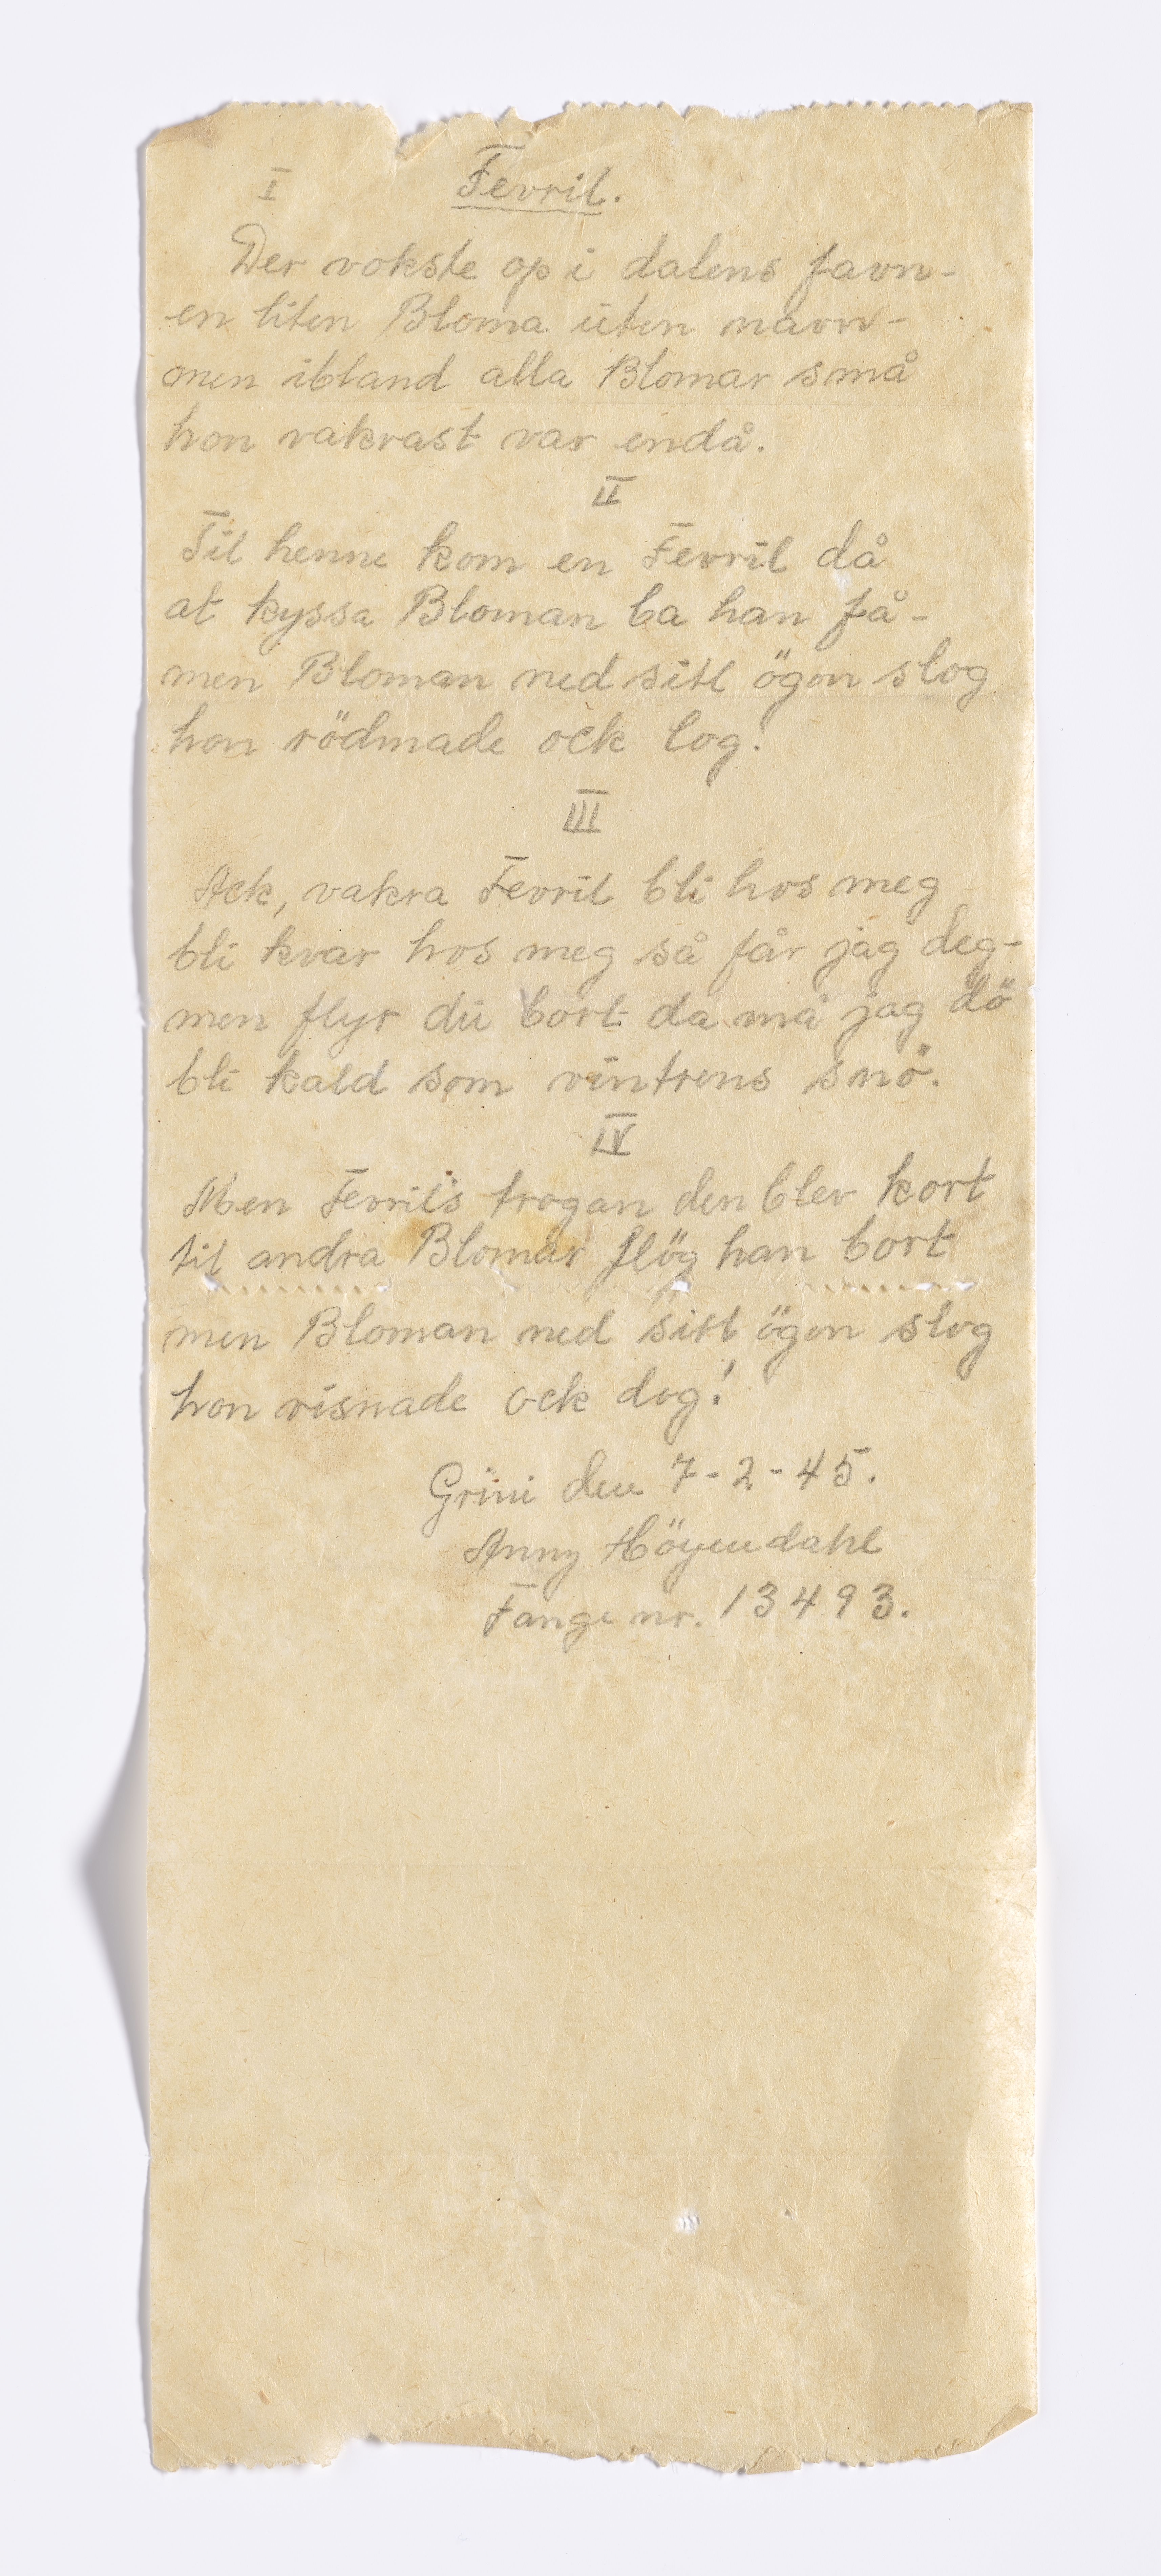 I Fevril.
Der vokste op i dalens favn-
en liten Bloma uten navn-
men ibland alla Blomar små
hon vakrast var endå.
II
Til henne kom en Fevril då
at kyssa Bloman ba han få-
men Bloman ned sitt ögon slog
hon rödmade ock log!
III
Ack, vakra Fevril bli hos meg
bli kvar hos meg så får jag deg-
men flyr du bort da må jag dö
bli kald som vintrens snö.
IV
Men Fevrils trogan den blev kort
til andra Blomar flög han bort
men Bloman ned sitt ögon slog
hon visnade ock dog!
Grini den 7-2-45.
Anny Höyendahl
Fange nr. 13493.